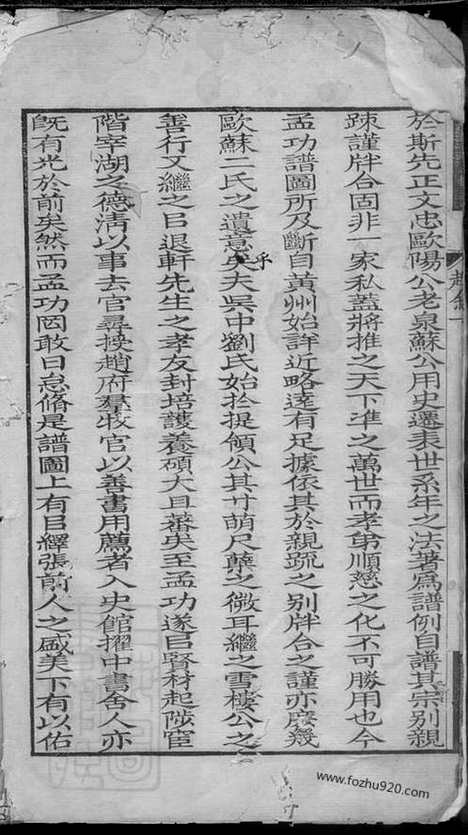 於斯先正文忠歐陽公老泉蘇公用史遷表世系年之法著爲譜例自譜其宗别親
疎謹牉合固非一家私蓋將推之天下準之萬世而孝弟順慈之化不可勝用也今
孟功譜圖所及斷自黄州始詳近略逺有足據依其於親疏之别牉合之謹亦庶幾
歐蘇二氏之遺意矣乎夫吳中劉氏始於提領公其寸萌尺蘖之微耳繼之雪樓公之
善行又繼之㠯退軒先生之孝友封培護養碩大且蕃矣至孟功遂㠯賢材起陟宦
階宰湖之德淸以事去官尋挨趙府羣牧官以善書用薦者入史館擢中書舍人亦
旣有光於前矣然而孟功罔敢日怠脩是譜圖上有㠯繹張前人之盛美下有以佑
趙叙一
www.fozhu920.com